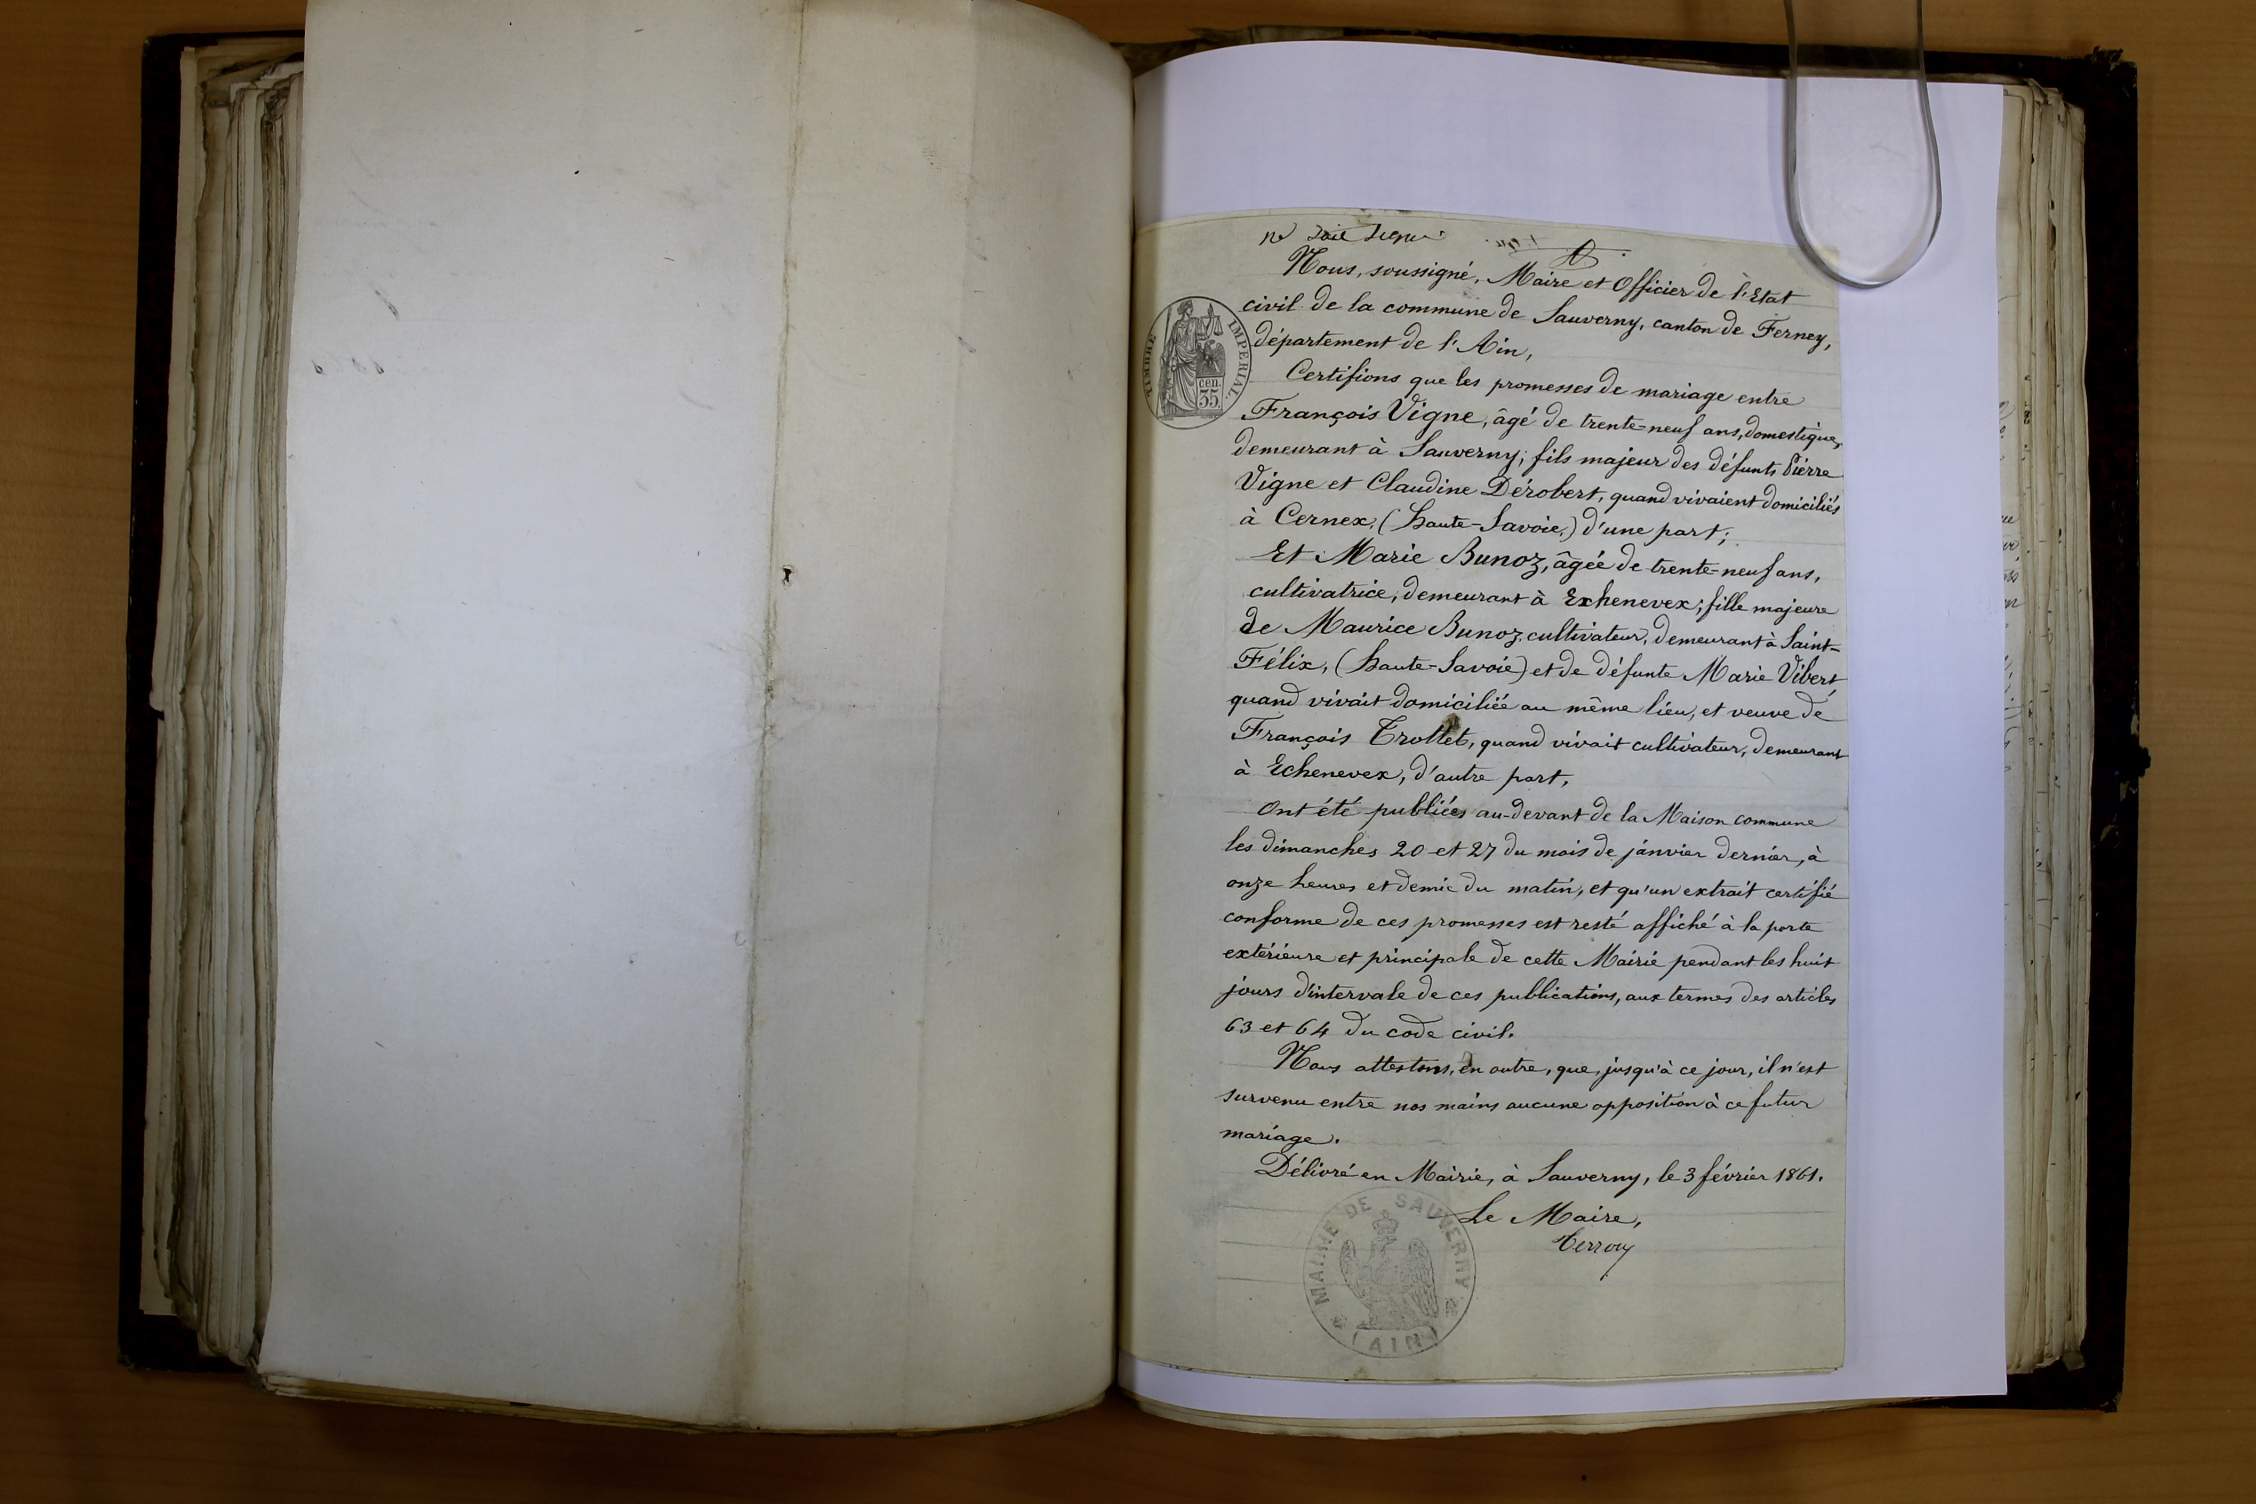 Nous, soussigné, Maire et Officier de l'Etat
civil de la commune de Sauverny, canton de Ferney,
département de l'Ain,
TIMBRE IMPERIAL.
cen.
35.
Certifions que les promesses de mariage entre
François Vigne, âgé de trente-neuf ans, domestique,
demeurant à Sauverny; fils majeur des défunts Pierre
Vigne et Claudine Dérobert, quand vivaient domiciliés
à Cernex, (haute-Savoie,) d'une part;
Et Marie Bunoz, âgée de trente-neuf ans,
cultivatrice, demeurant à Exhenevex; fille majeure
de Maurice Bunoz, cultivateur, demeurant à Saint-
Félix, (haute-Savoie) et de défunte Marie Vibert,
quand vivait domiciliée au même lieu, et veuve de
François Trottet, quand vivait cultivateur, demeurant
à Echenevex, d'autre part,
Ont été publiées au-devant de la Maison commune
les dimanches 20 et 27 du mois de janvier dernier, à
onze heures et demie du matin, et qu'un extrait certifié
conforme de ces promesses est resté affiché à la porte
extérieure et principale de cette Mairie pendant les huit
jours d'intervale de ces publications, aux termes des articles
63 et 64 du code civil.
Nous attestons, en outre, que, jusqu'à ce jour, il n'est
survenu entre nos mains aucune opposition à ce futur
mariage.
Délivré en Mairie, à Sauverny, le 3 février 1861.
Le Maire,
MAIRIE DE SAUVERNY
(AIN)